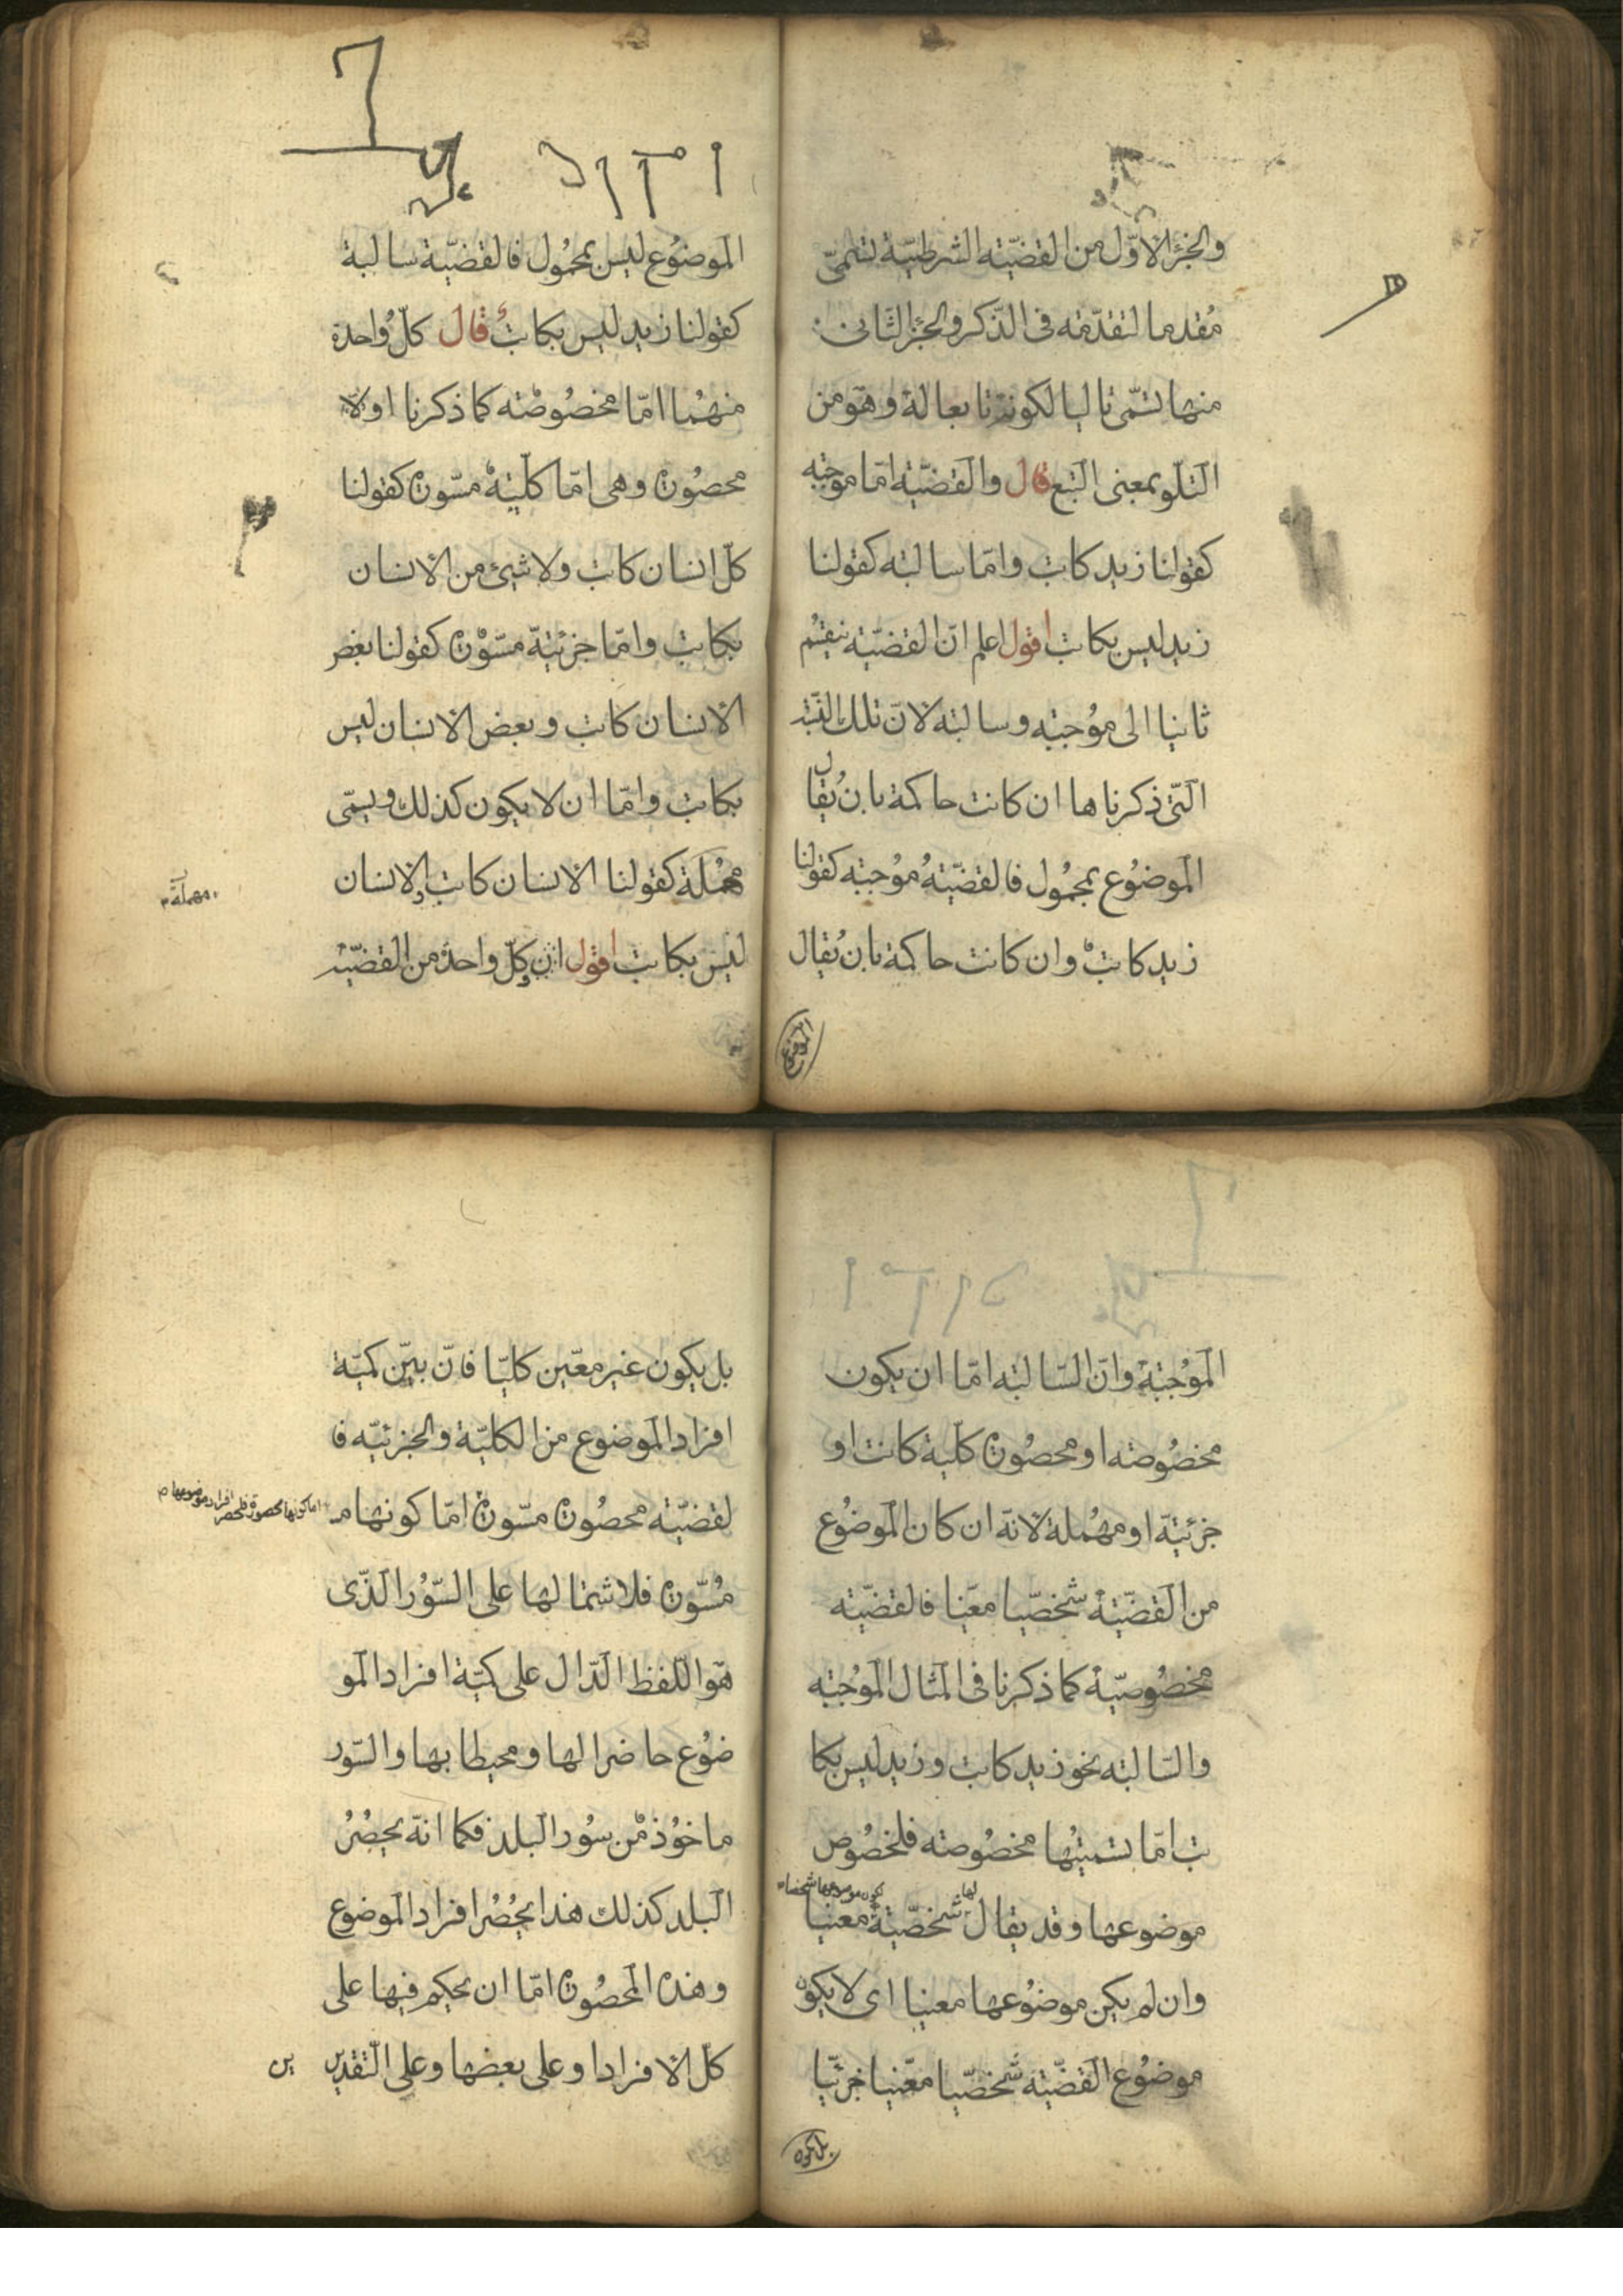 والجزء الاوّل من القضيّة الشرطيّة تسمّى
مُقدما لتقدّمه فى الذّكر والجزء الثّانى
منها تسمّى تاليا لكونه تابعا له وهو من
التّلو بمعنى التّبع قال والقضيّة امّا موجبه
كقولنا زيد كاتب وامّا سالبه كقولنا
زيد ليس بكاتب اقول اعلم انّ القضيّة ينقسم
ثانيا الى مُوجبه وسالبه لانّ تلك النّسبة
الّتى ذكرناها ان كانت حاكمة بان يُقال
الموضوع محمُول فالقضيّةُ مُوجبه كقولنا
زيد كاتب وان كانت حاكمة بان يُقال
الموضوع
الموضُوع ليس بمحمُول فالقضيّة سالبة
كقولنا زيد ليس بكاتب قال كلّ واحدة
منهُما امّا مخصُوصه كما ذكرنا اولا
محصُورة وهى امّا كلّية مسّورة كقولنا
كلّ انسان كاتب ولا شيئ من الانسان
بكاتب وامّا جزئيّة مسّورة كقولنا بعض
الانسان كاتب وبعض الانسان ليس
بكاتب وامّا ان لا يكون كذلك ويسمّى
مهُملة كقولنا الانسان كاتب والانسان
مهملة
ليس بكاتب اقول ان كلّ واحدة من القضيّة
الموُجبة وانّ السّالبه امّا ان يكون
مخصُوصه او محصُورة كلّية كانت او
جزئيّة او مهُملة لانّه ان كان الموضُوع
من القضيّة شخصّيا معّينا فالقضيّه
مخصُوصيّة كما ذكرنا فى المثال الموُجبه
والسّالبه نحو زيد كاتب وزيد ليس بكا
تب امّا تسميتُها مخصُوصه فلخصُوص
لها كون موضوعها شخصا
موضوعها وقد يقال شخصّية معينا
وان لم يكن موضُوعها معينا اى لا يكون
موضُوع القضّيه شخصّيا معّينا جزئيّا
بل يكون
بل يكون غير معّين كليّا فانّ بيّن كميّة
افراد الموضوع من الكليّة والجزئيّه فا
لقضيّه محصُورة مسّورة امّا كونها مـ
اما كونها محصورة فلحصر افراد موضوعها
مُسّورة فلاشتمالها على السّوُر الّذى
هو اللّفظ الدّال على كميّة افراد المو
ضوُع حاضرا لها ومحيطا بها والسّور
ماخوُذ مّن سوُر البلد فكما انّه يحصُرُ
البلد كذلك هذا يحُصُر افراد الموضوع
وهذه المحصُورة امّا ان يحكم فيها على
كلّ الافراد او على بعضها وعلى التّقدير
ين